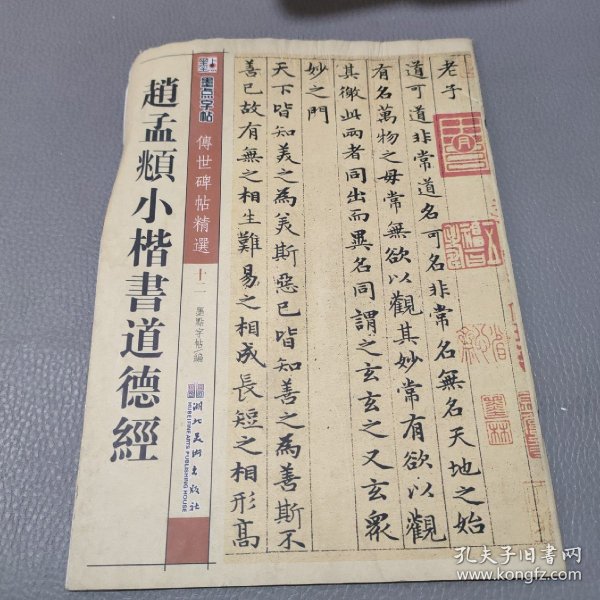 趙孟頫小楷書道德經
墨点字帖
傳世碑帖精選
十二
墨點字帖/編
湖北美術出版社
HUBEI FINE ARTS PUBLISHING HOUSE
老子
道可道非常道名可名非常名無名天地之始
有名萬物之母常無欲以觀其妙常有欲以觀
其徼此兩者同出而異名同謂之玄玄之又玄衆
妙之門
天下皆知美之為美斯惡已皆知善之為善斯不
善已故有無之相生難易之相成長短之相形高
孔夫子旧书网
www.kongfz.com